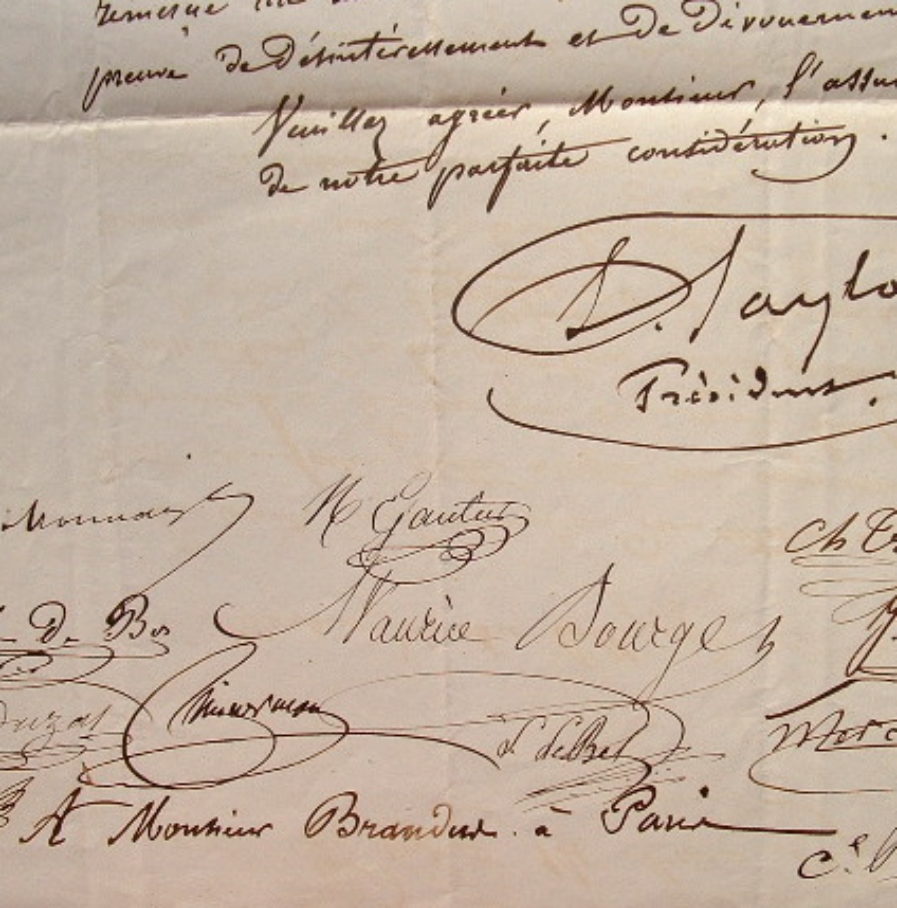 preuve de Désintéressement et de Dévouemen
Veuillez agréer, Monsieur, l'assu
de notre parfaite considération.
D. Taylo
Président.
M Gautier
Ch
De Bos
Maurice Bourges
Dauzat
Zimmerman
L. LeBel
A Monsieur Brandus à Paris